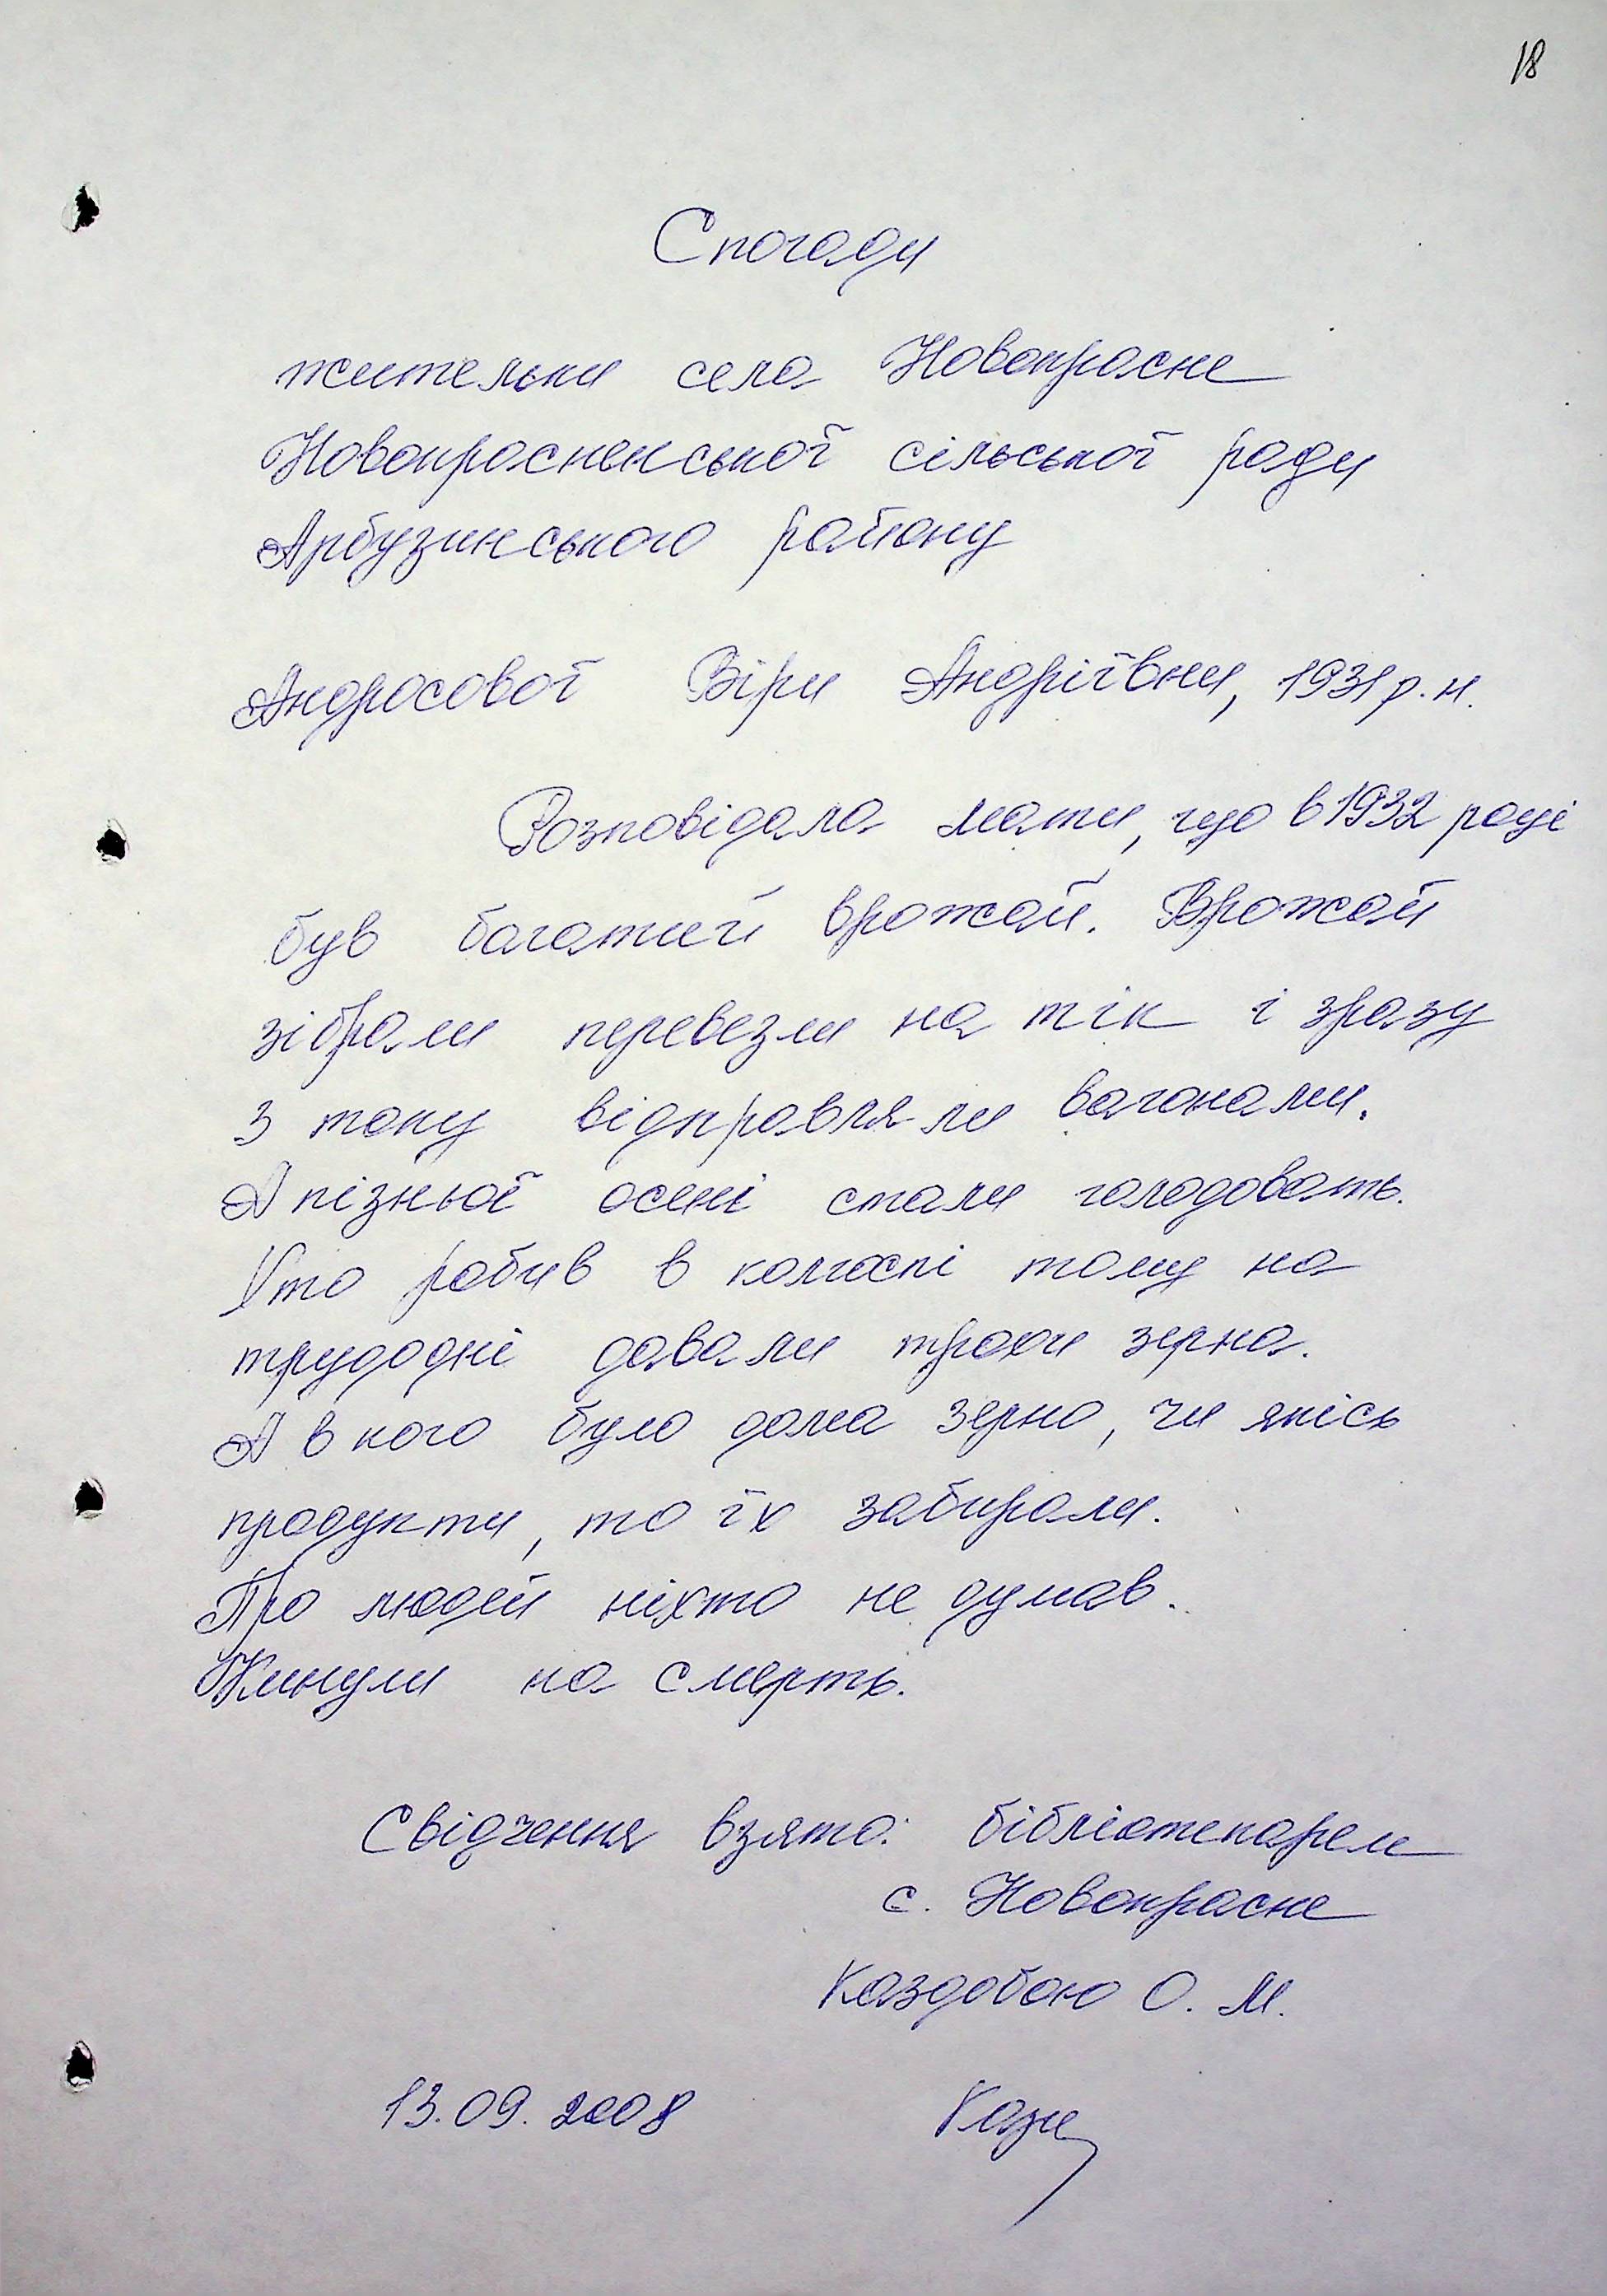 18
Спогади
жительки села Новокрасне
Новокрасненської сільської ради
Арбузинського району
Андросової Віри Андріївни, 1931 р.н.
Розповідала мати, що в 1932 році
був багатий врожай. Врожай
зібрали перевезли на тік і зразу
з току відправляли вагонами.
А пізньої осені стали голодовать.
Хто робив в колгоспі тому на
трудодні давали трохи зерна.
А в кого було дома зерно, чи якісь
продукти, то їх забирали.
Про людей ніхто не думав.
Кинули на смерть.
Свідчення взято: бібліотекарем
с. Новокрасне
Каздобою О. М.
13.09.2008